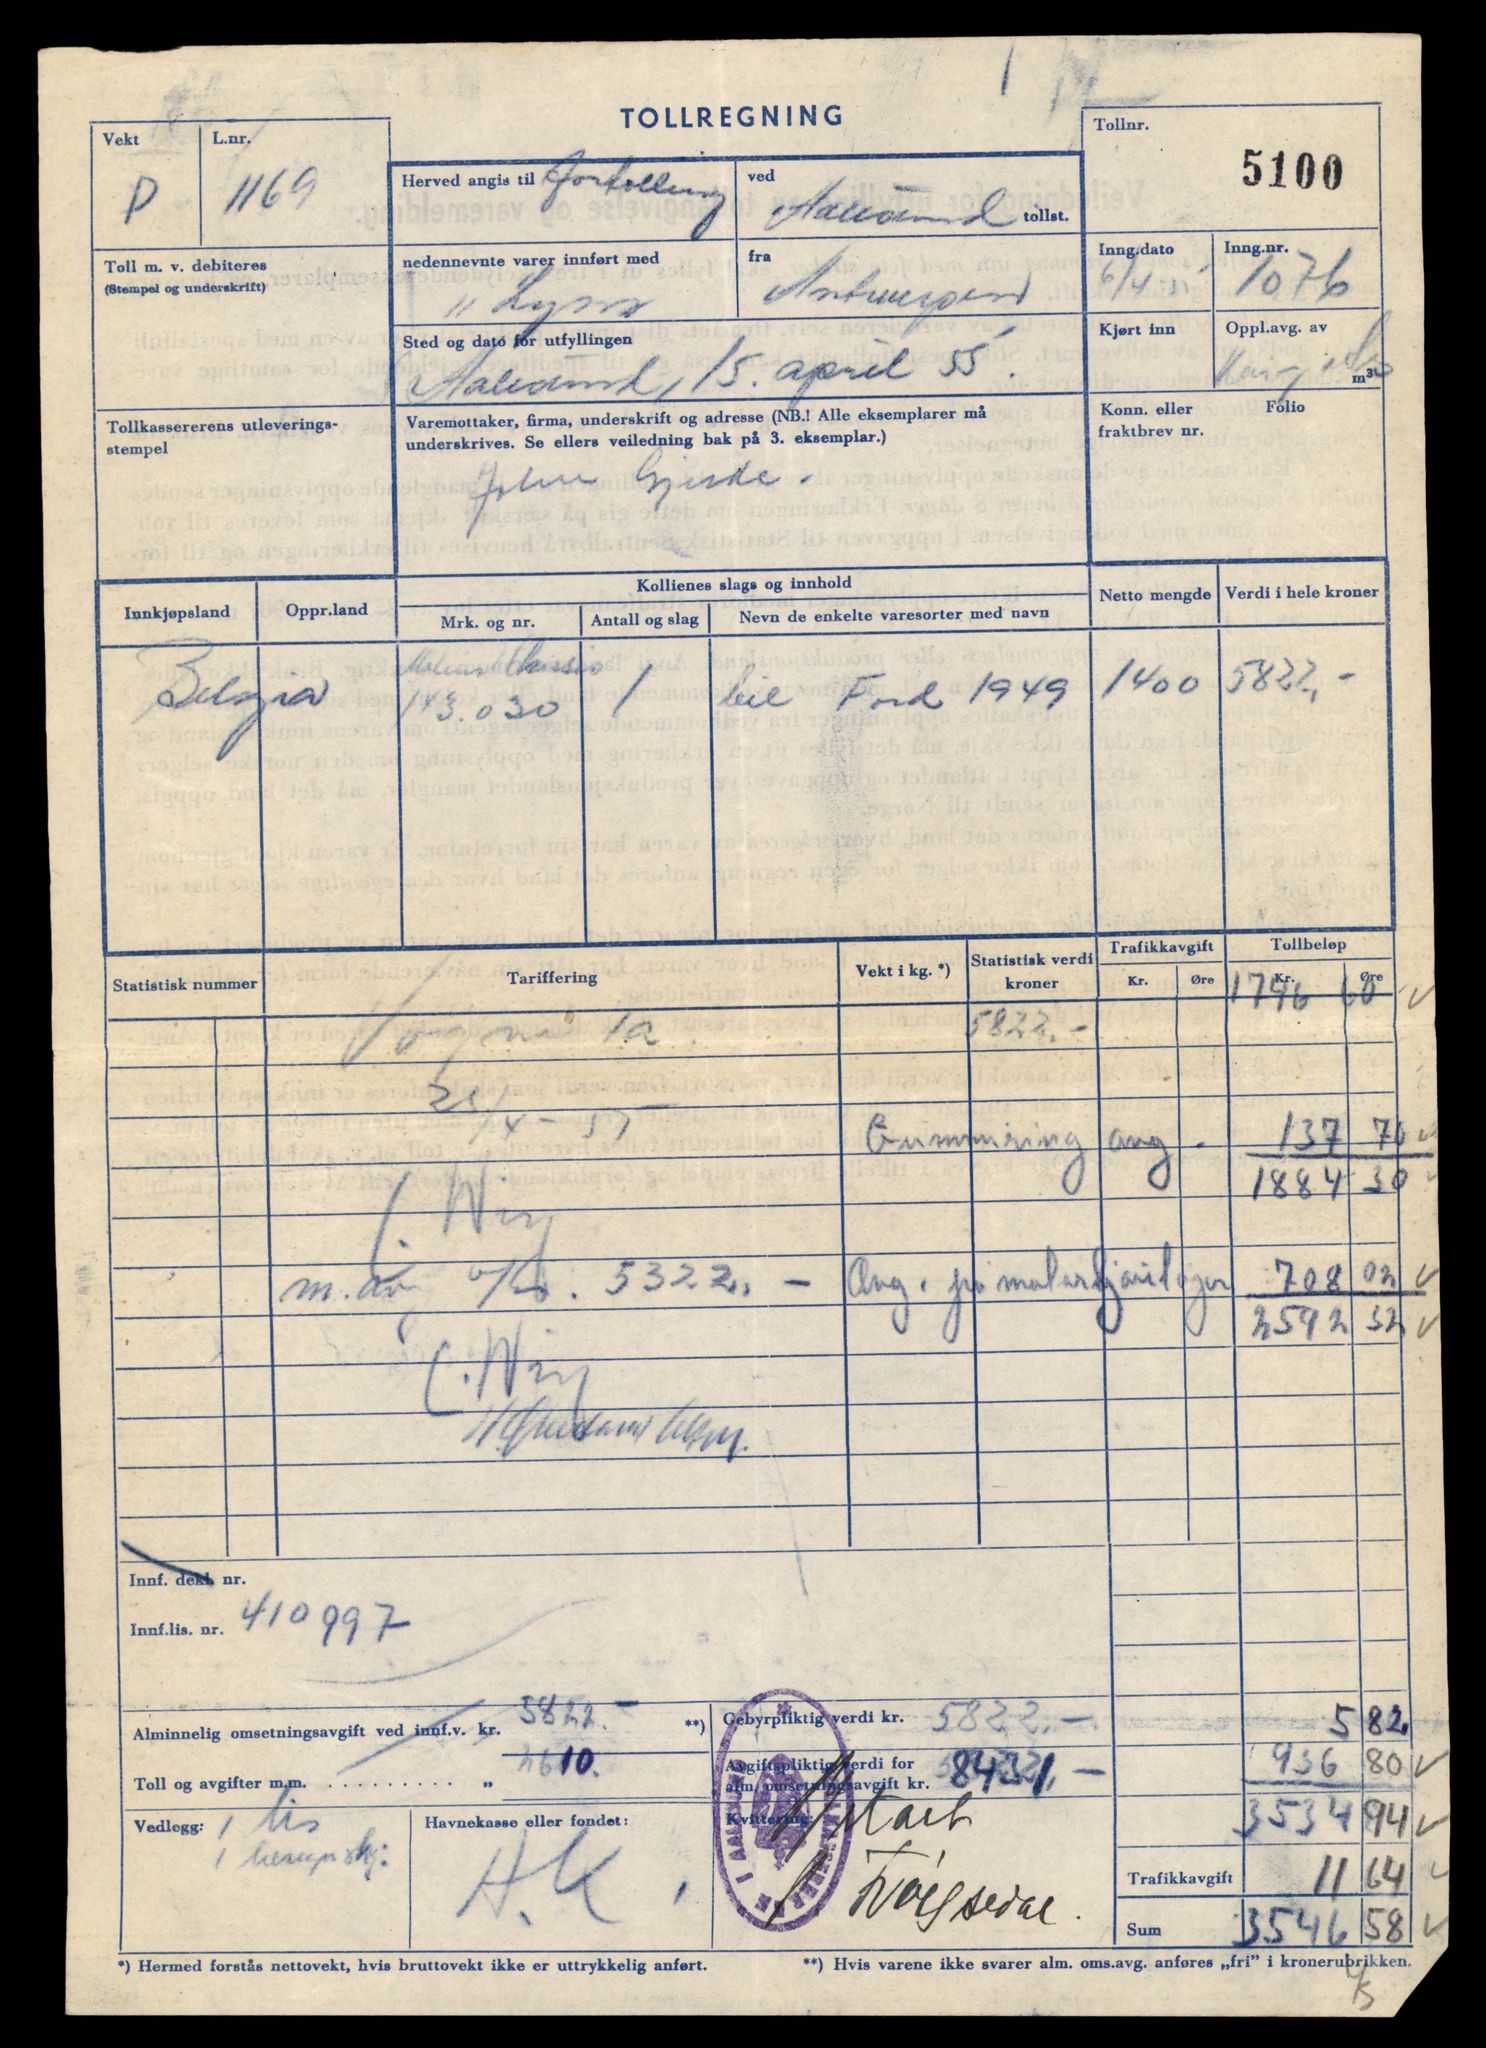 TOLLREGNING
Vekt
P
L.nr.
1169
Herved angis til Fortolling
ved Aalesund tollst.
Tollnr.
5100
Toll m. v. debiteres
(Stempel og underskrift)
nedennevnte varer innført med
" Lyra
fra
Antwerpen
Inng.dato
6/4 55
Inng.nr.
1076
Sted og dato for utfyllingen
Aalesund, 15. april 55.
Kjørt inn
Oppl.avg. av
m³
Tollkassererens utleverings-
stempel
Varemottaker, firma, underskrift og adresse (NB.! Alle eksemplarer må
underskrives. Se ellers veiledning bak på 3. eksemplar.)
John Gjerde.
Konn. eller
fraktbrev nr.
Folio
Innkjøpsland
Oppr.land
Kollienes slags og innhold
Mrk. og nr.
Antall og slag
Nevn de enkelte varesorter med navn
Netto mengde
Verdi i hele kroner
Belgia
Chassis
143.030
1
bil Ford 1949
1400
5822,-
Statistisk nummer
Tariffering
Vekt i kg. *)
Statistisk verdi
kroner
Trafikkavgift
Kr.
Øre
Tollbeløp
Kr.
Øre
1746 60
Vogna 1a
5822.-
21/4-55
Gummiring avg. 137 70
1884 30
C. Wiig
m. av v/kr. 5322.-
Avg. på motorkjøretøyer 708 02
2592 32
C. Wiig
Innf. dekl. nr.
Innf.lis. nr. 410997
Alminnelig omsetningsavgift ved innf.v. kr. 5822.- **)
Toll og avgifter m.m. . . . . . . . . . „ 2610.
Gebyrpliktig verdi kr. 5822.-
Avgiftspliktig verdi for
alm. omsetningsavgift kr. 8432,-
5 82
936 80
3534 94
Vedlegg: 1 lis
1
Havnekasse eller fondet:
H.K.
Kvittering:
I AALESUND
Trafikkavgift 11 64
Sum 3546 58
*) Hermed forstås nettovekt, hvis bruttovekt ikke er uttrykkelig anført.
**) Hvis varene ikke svarer alm. oms.avg. anføres „fri” i kronerubrikken.